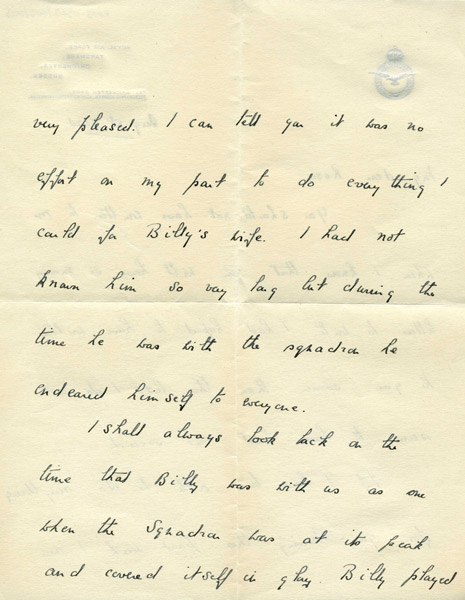 very pleased. I can tell you it was no
effort on my part to do everything I
could for Billy's wife. I had not
known him so very long but during the
time he was with the squadron he
endeared himself to everyone.
I shall always look back on the
time that Billy was with us as one
when the Squadron was at its peak
and covered itself in glory. Billy played